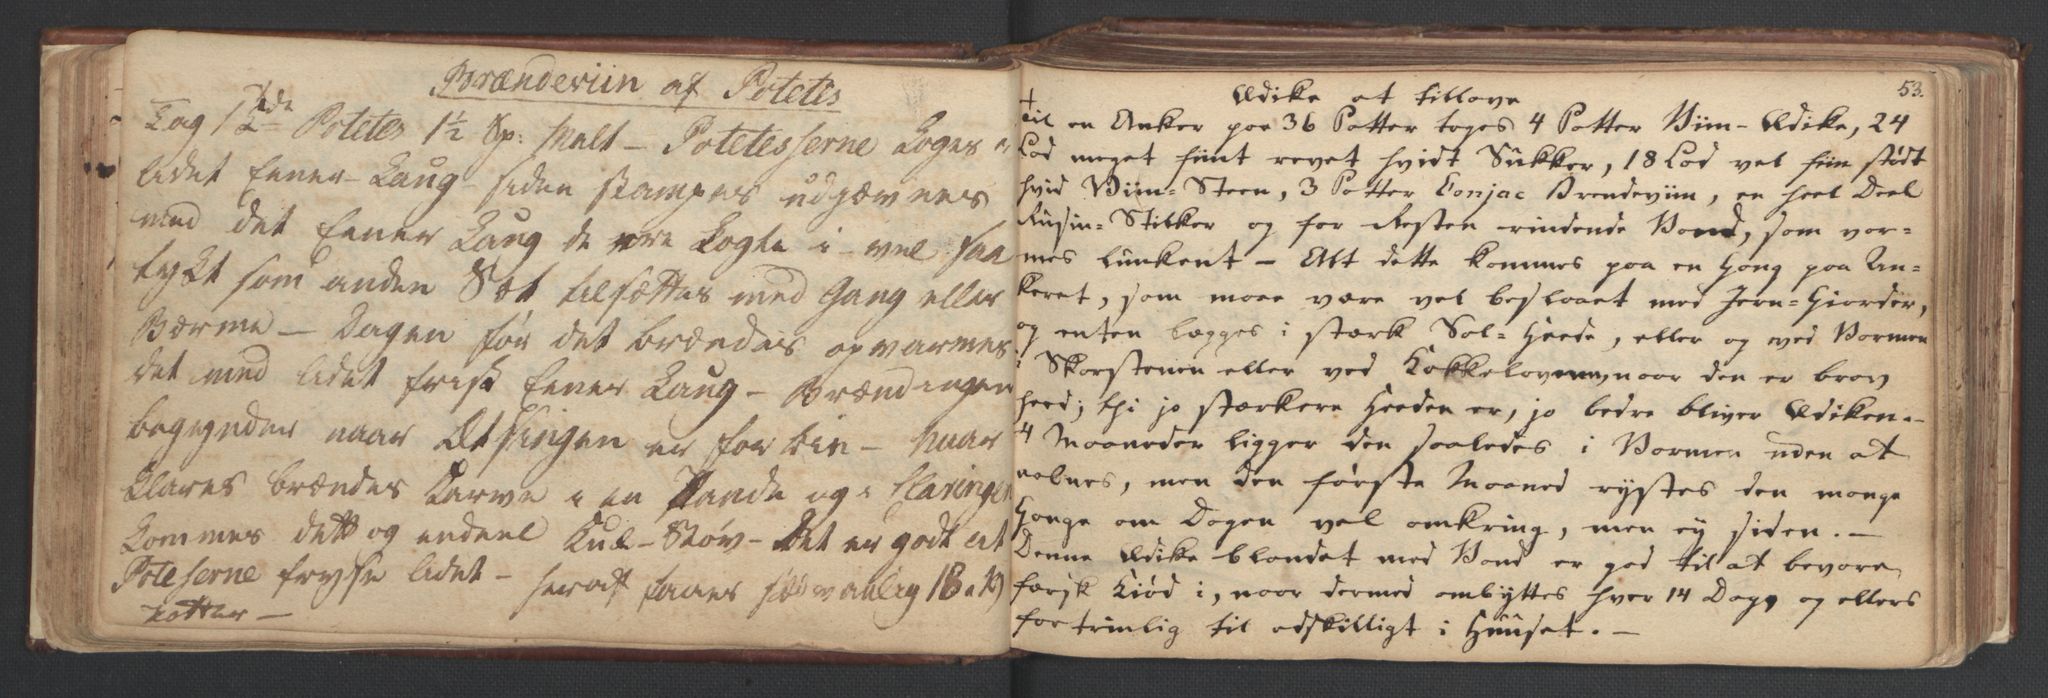 Brændeviin af Potetes
Tag 1 Tde Potetes 1½ Sp: Malt – Potetesserne Koges i
lidet Eener-Laug – siden stampes udjævnes
med det Eener Laug de ere Kogte i – vel saa
tykt som anden Sæt tilsættes med Gang eller
Bærme – Dagen før det brændes opvarmes
det med lidet frisk Eener Laug – Brændingen
begyndes naar Gæsingen er forbie – Naar
Klares brændes Karve i en Pande og i Claringen
Kommes dette og endeel Kul-Støv – Det er godt at
Poteserne fryse lidet – heraf faaes sædvanlig 18 a 19
Potter –
53.
Ædike at tillave
Til en Anker paa 36 Potter tages 4 Potter Viin-Ædike, 24
Lod meget fiint revet hvidt Sukker, 18 Lod vel fiin stødt
hvid Viin-Steen, 3 Potter Conjac Brendeviin, en heel Deel
Rusin-Stilker og for Resten rindende Vand, som var-
mes lunkent – Alt dette kommes paa en Gang paa An-
keret, som maae være vel beslaaet med Jern-Giorder,
og enten lægges i stærk Sol-Heede, eller og ved Varmen
i Skorstenen eller ved Kakkelovnen, naar den er brav
heed; thi jo stærkere Heeden er, jo bedre bliver Ædiken. –
4 Maaneder ligger den saaledes i Varmen uden at
aabnes, men den første Maaned rystes den mange
Gange om Dagen vel omkring, men ey siden. –
Denne Ædike blandet med Vand er god til at bevare
færsk Kiød i, naar dermed ombyttes hver 14 Dage og ellers
fortrinlig til adskilligt i Huuset. –